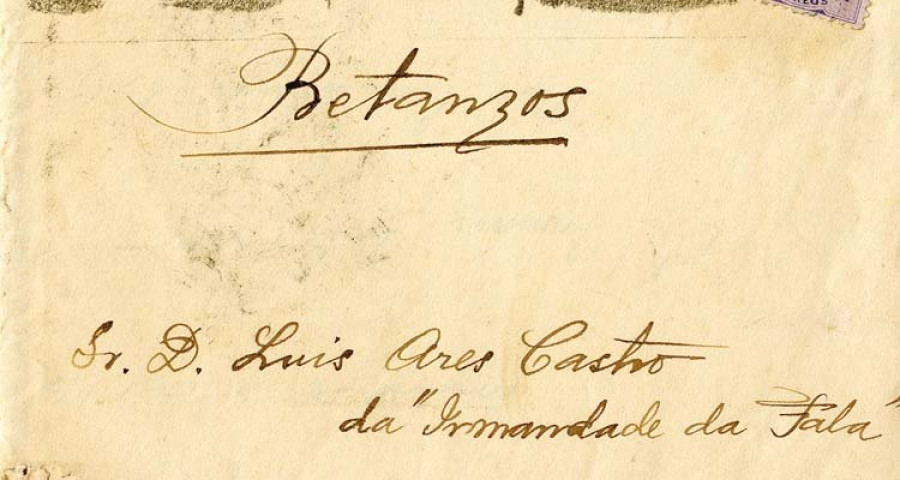 Betanzos
Sr. D. Luis Ares Castro
da "Irmandade da Fala"